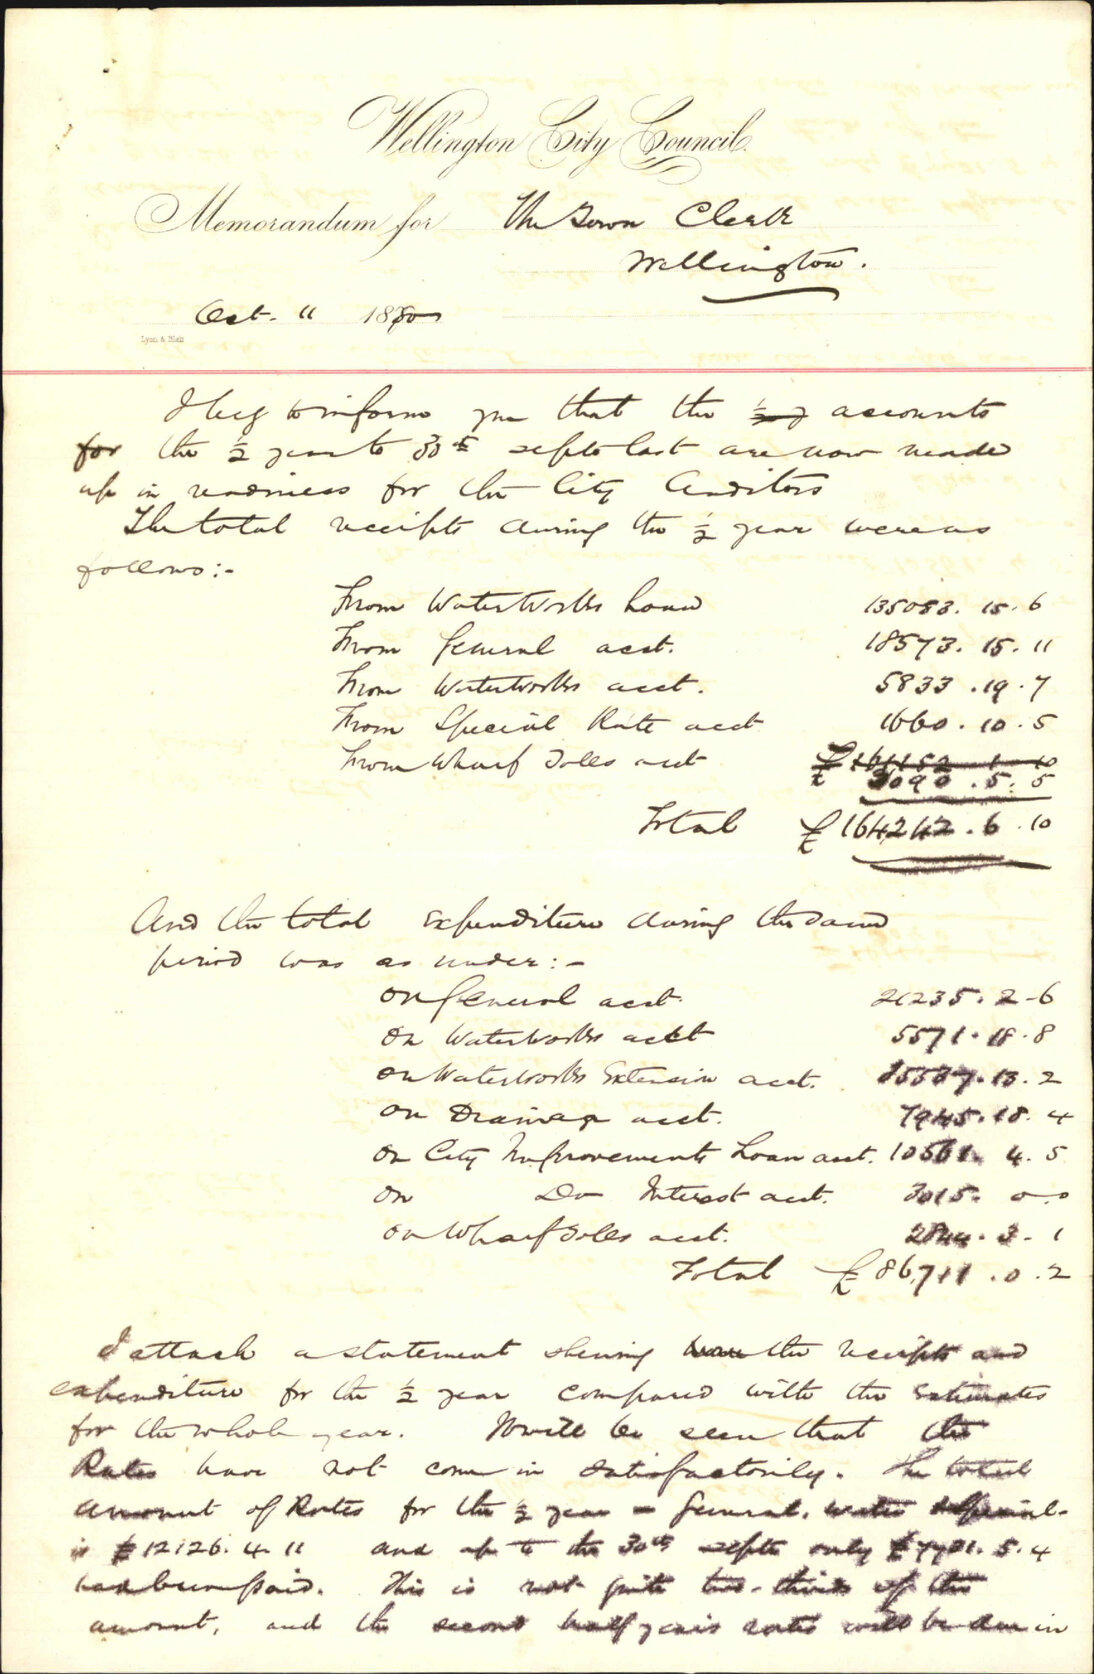 Wellington City Council
Memorandum for The Town Clerk
Wellington.
Oct. 11 1880
Lyon & Blair
I beg to inform you that the ½ y accounts
for the ½ year to 30th Septr last are now made
up in readiness for the City Auditors
The total receipts during the ½ year were as
follows:-
From WaterWorks Loan 135083. 15. 6
From General acct. 18573. 15. 11
From Waterworks acct. 5833. 19. 7
From Special Rate acct 1660. 10. 5
£ 161152 1 10
From Wharf Tolls acct £ 3090. 5. 5
Total £ 164242. 6. 10
And the total expenditure during the same
period was as under:-
On General acct. 21235. 2. 6
On Waterworks acct 5571. 18. 8
On Waterworks Extension acct. 35537. 13. 2
On Drainage acct. 7945. 18. 4
On City Improvements Loan acct. 10561. 4. 5
On Do Interest acct. 3015. 0. 0
On Wharf Tolls acct. 2844. 3. 1
Total £ 86,711. 0. 2
I attach a statement shewing the receipts and
expenditure for the ½ year compared with the Estimates
for the whole year. It will be seen that the
Rates have not come in satisfactorily. The total
amount of Rates for the ½ year - General, water & special-
is £12126. 4. 11 and up to the 30th Septr only 5. 4
had been paid. This is not quite two-thirds of the
amount, and the second half year's rates will be due in